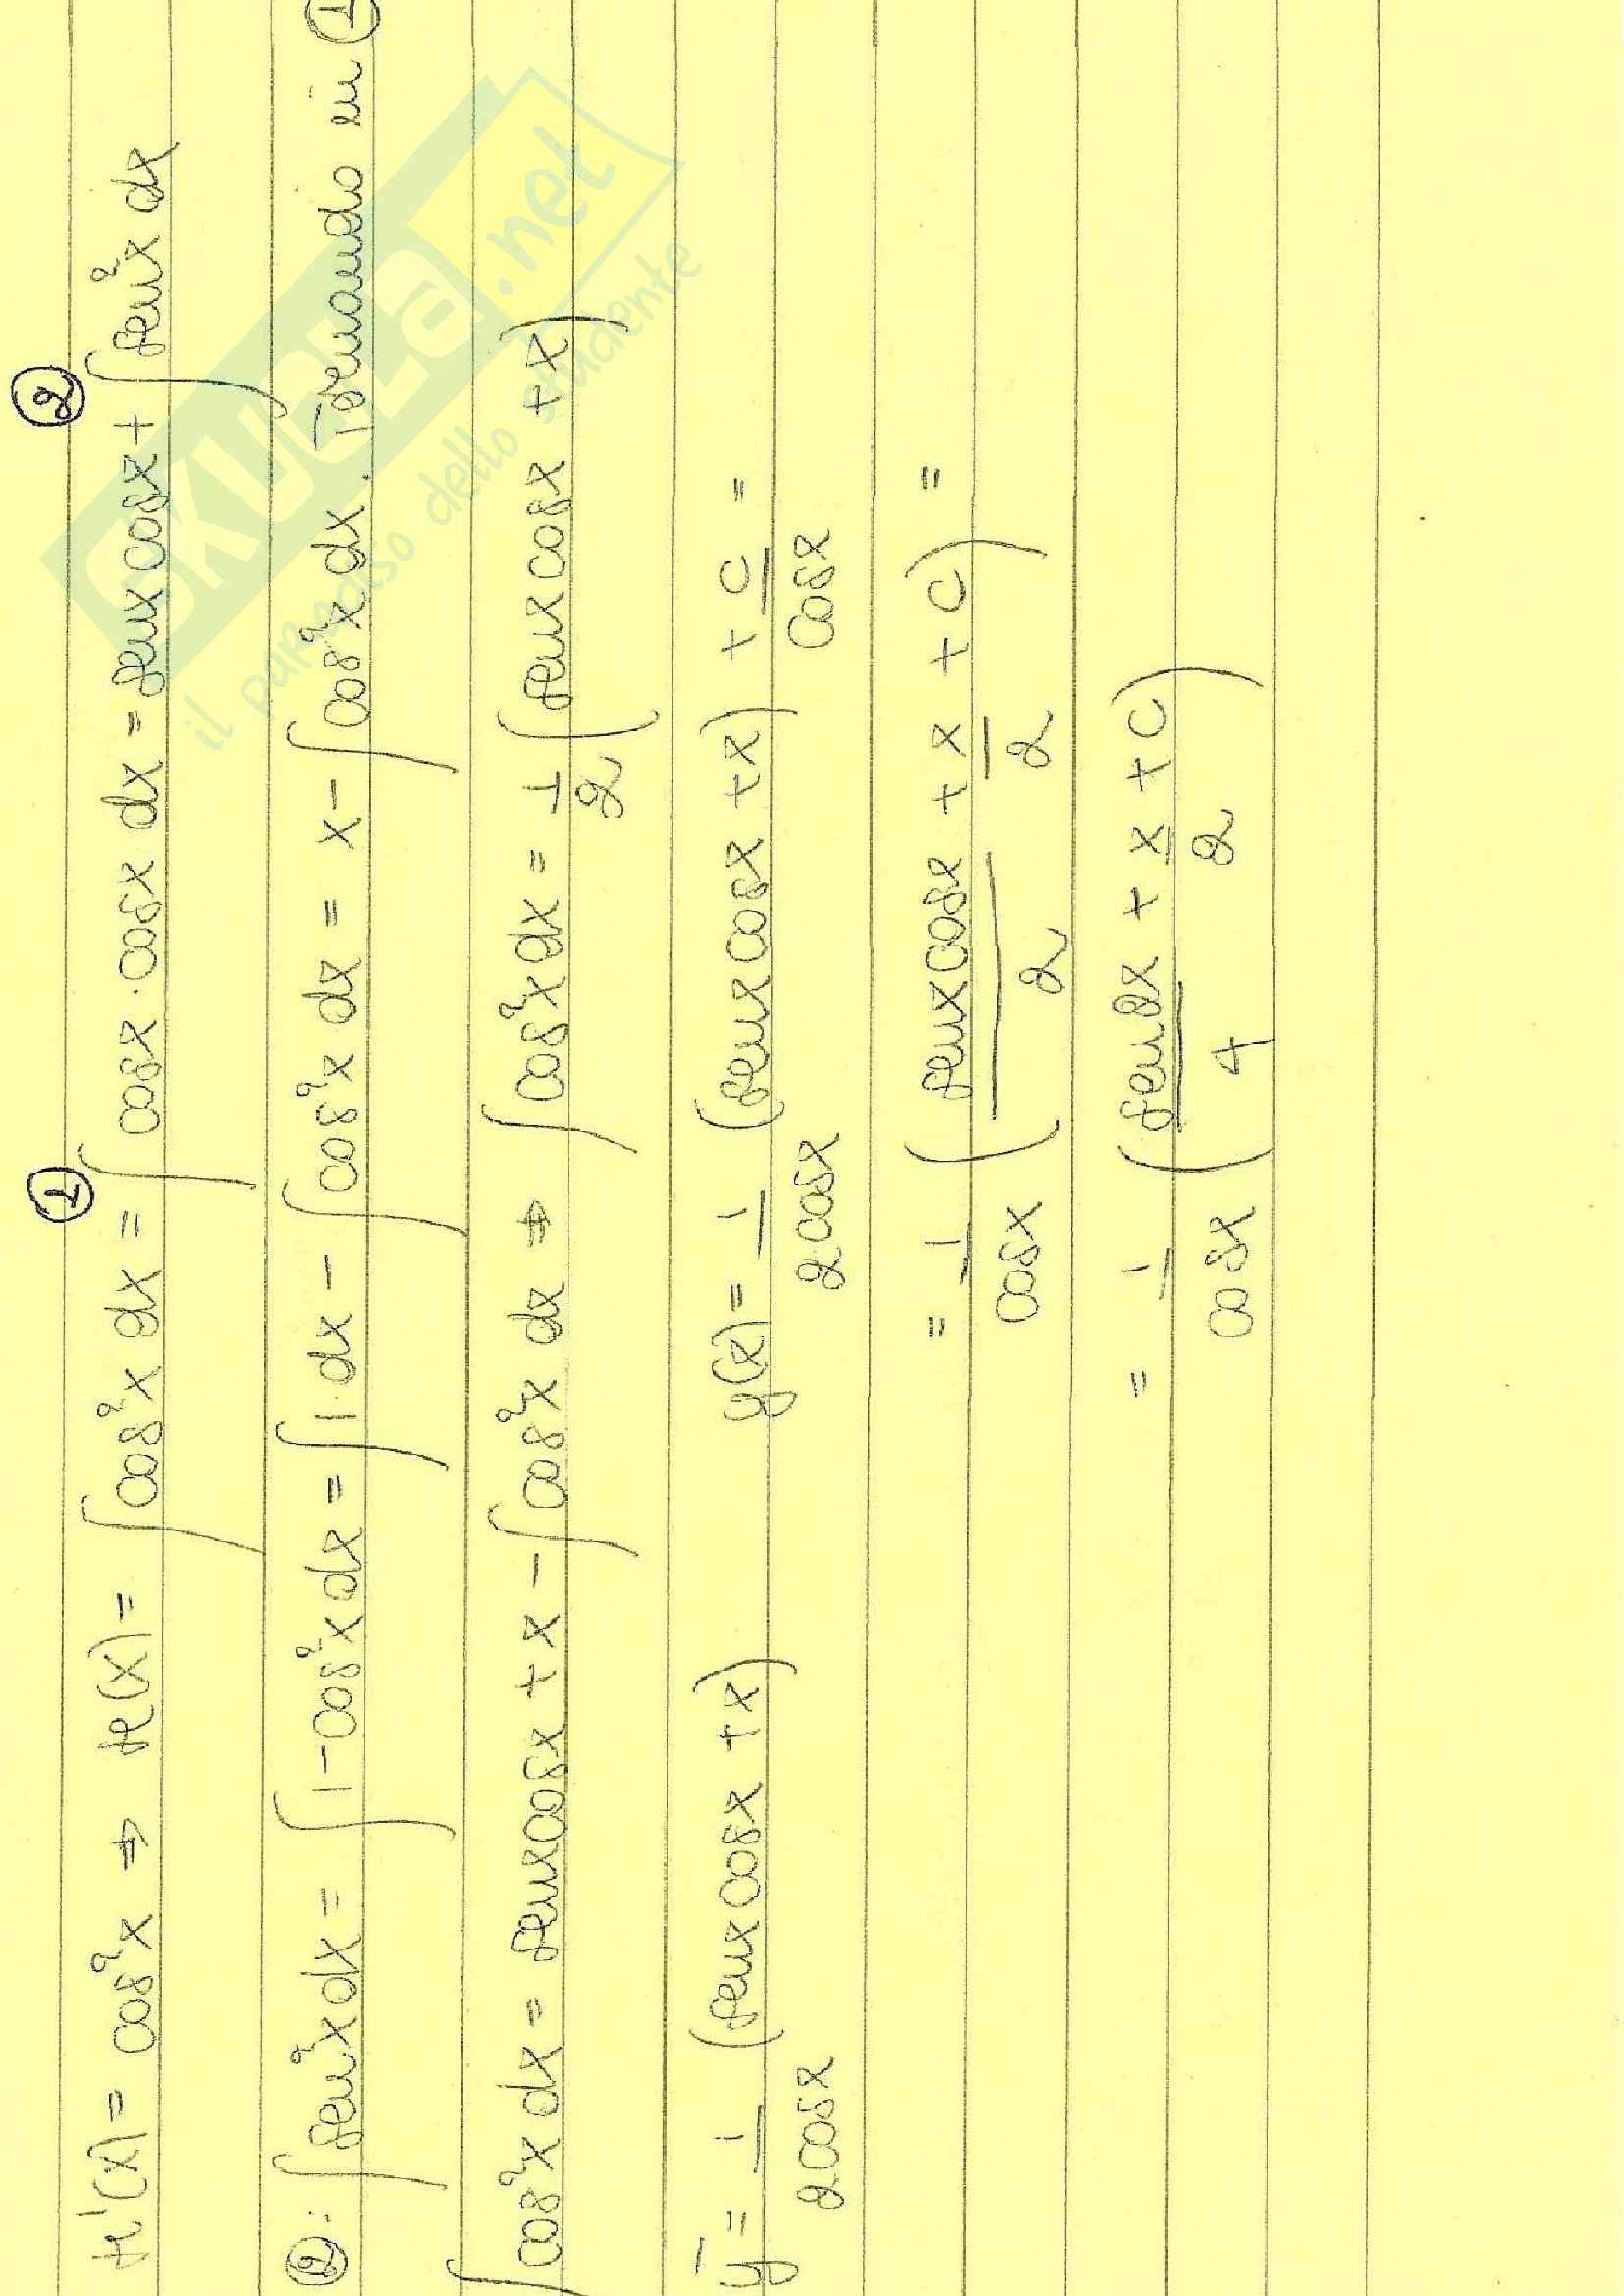 k'(x) = cos²x ⇒ k(x) = ∫cos²x dx = ① ∫cosx·cosx dx = senxcosx + ② ∫sen²x dx
②: ∫sen²x dx = ∫1-cos²x dx = ∫1 dx - ∫cos²x dx = x - ∫cos²x dx. Tornando in ①
∫cos²x dx = senxcosx + x - ∫cos²x dx ⇒ ∫cos²x dx = 1/2 (senxcosx + x)
ȳ = 1/2cosx (senxcosx + x) y(x) = 1/2cosx (senxcosx + x) + c/cosx =
= 1/cosx (senxcosx/2 + x/2 + c) =
= 1/cosx (sen2x/4 + x/2 + c)
SKUOLA.net
il paradiso dello studente